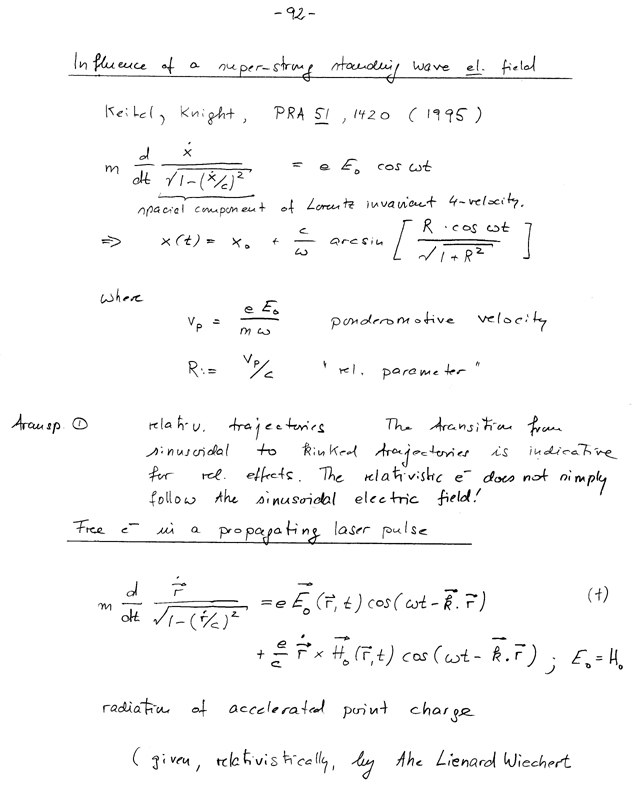 -92-
Influence of a super-strong standing wave el. field
Keitel, Knight, PRA 51, 1420 (1995)
m d/dt ẋ/√(1-(ẋ/c)²) = e E₀ cos ωt
spacial component of Lorentz invariant 4-velocity.
⇒ x(t) = x₀ + c/ω arcsin [ R · cos ωt / √(1+R²) ]
where
v_p = e E₀ / m ω ponderomotive velocity
R := v_p/c "rel. parameter"
Transp. ① relativ. trajectories The transition from
sinusoidal to kinked trajectories is indicative
for rel. effects. The relativistic e⁻ does not simply
follow the sinusoidal electric field!
Free e⁻ in a propagating laser pulse
m d/dt ṙ⃗/√(1-(ṙ/c)²) = e E⃗₀(r⃗, t) cos(ωt - k⃗.r⃗) (+)
+ e/c ṙ⃗ × H⃗₀(r⃗,t) cos(ωt - k⃗.r⃗) ; E₀ = H₀
radiation of accelerated point charge
(given, relativistically, by the Lienard Wiechert